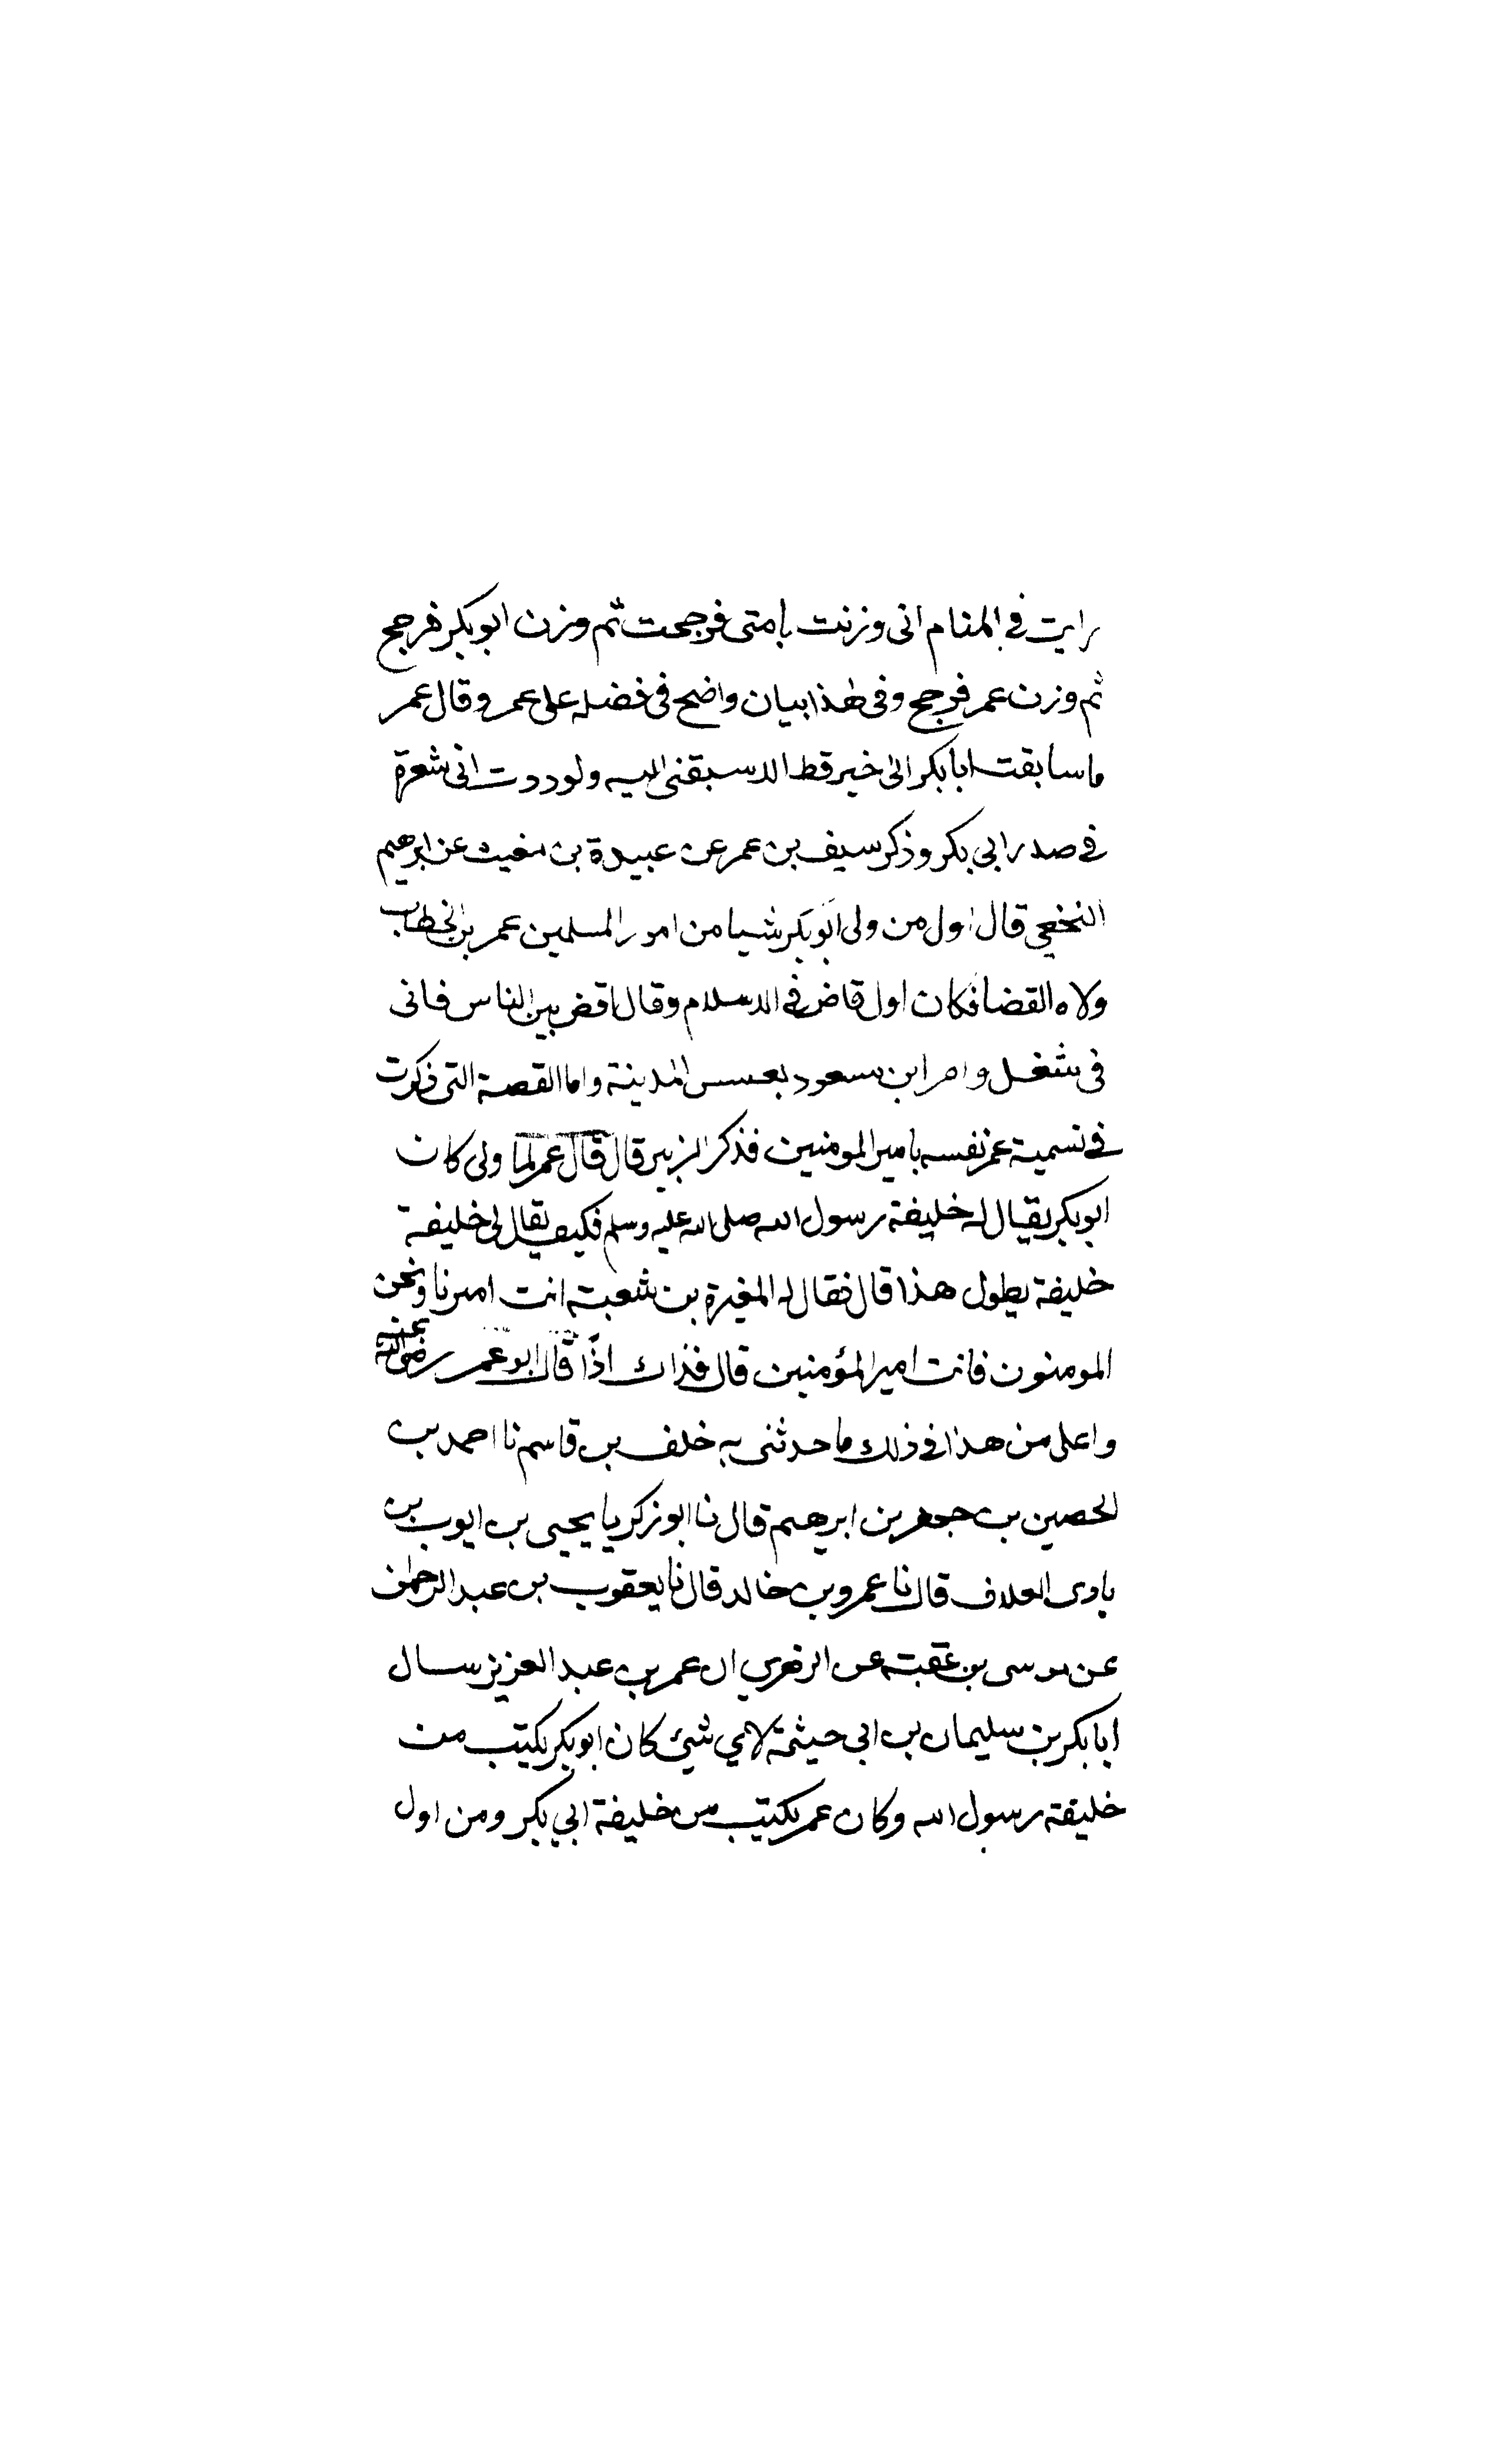 رايت في المنام انى وزنت بامتى فرجحت ثم وزن ابو بكر فرجح
ثم وزن عمر فرجح وفى هذا بيان واضح فى فضله على عمر وقال عمر
ما سابقت ابا بكر الى خير قط الا سبقنى اليه ولوددت انى شعرة
في صدر ابي بكر وذكر سيف بن عمر عن عبيدة بن مغيث عن ابرهيم
النخعي قال اول من ولى ابو بكر شيا من امور المسلمين عمر بن الخطاب
ولاه القضا فكان اول قاض في الاسلام وقال اقض بين الناس فانى
فى شغل وامر ابن مسعود بعسس المدينة واما القصة التى ذكرت
في تسمية عمر نفسه بامير المومنين فذكر الزبير قال قال عمر لما ولى كان
ابو بكر يقال له خليفة رسول الله صلى الله عليه وسلم فكيف يقال لى خليفة
خليفة يطول هذا قال فقال له المغيرة بن شعبة انت اميرنا ونحن
المومنون فانت امير المؤمنين قال فذاك اذًا قال ابو عمر رضى الله عنه
واعلى من هذا في ذلك ما حدثنى به خلف بن قاسم نا احمد بن
الحصين بن جعفر بن ابرهيم قال نا ابو زكريا يحيى بن ايوب بن
بادى العلاف قال نا عمرو بن خالد قال نا يعقوب بن عبد الرحمان
عن موسى بن عقبة عن الزهري ان عمر بن عبد العزيز سال
ابا بكر بن سليمان بن ابى حيثمة لاي شيئ كان ابو بكر يكتب من
خليفة رسول الله وكان عمر يكتب من خليفة ابي بكر ومن اول